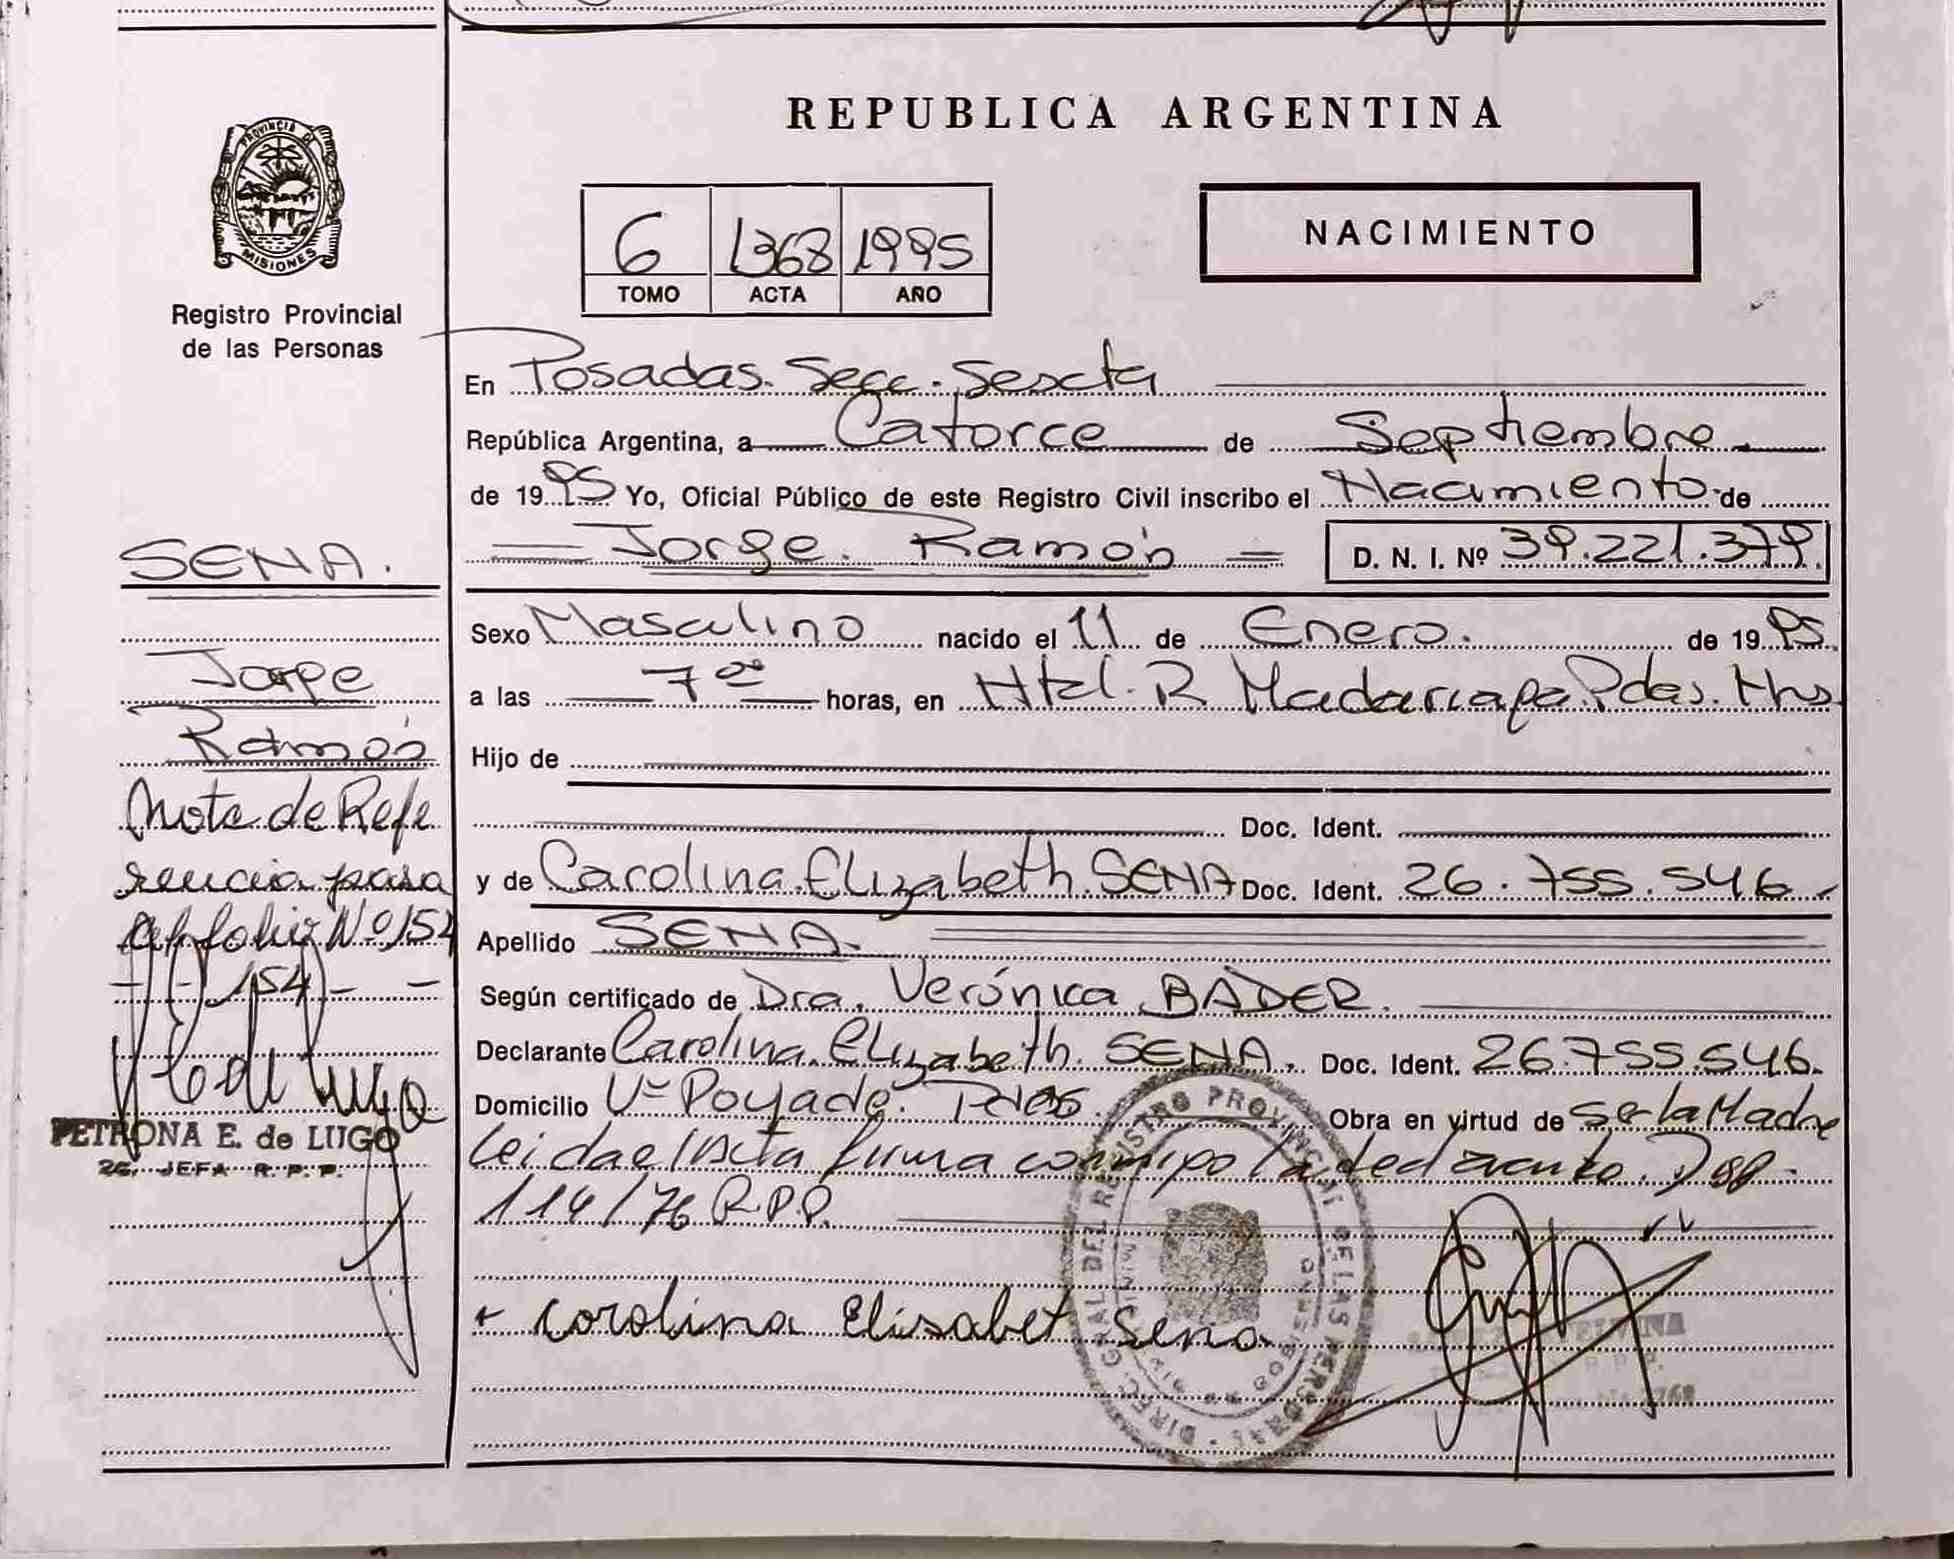 REPUBLICA ARGENTINA
PROVINCIA DE
MISIONES
Registro Provincial
de las Personas
6 1368 1995
TOMO ACTA AÑO
NACIMIENTO
En Posadas. Secc. Sexcta
República Argentina, a Catorce de Septiembre
de 1995 Yo, Oficial Público de este Registro Civil inscribo el Nacimiento de
Jorge Ramón D. N. I. Nº 39.221.379
Sexo Masculino nacido el 11 de Enero. de 1995
a las 7 horas, en Htal. R Madariaga. Pdas. Mns.
Hijo de
Doc. Ident.
y de Carolina Elizabeth SENA Doc. Ident. 26.755.546
Apellido SENA.
Según certificado de Dra. Verónica BADER.
Declarante Carolina Elizabeth SENA. Doc. Ident. 26.755.546.
Domicilio Vª Poujade. Pdas. Obra en virtud de ser la Madre
Leida el Acta firma conmigo la declarante. Disp.
114/76 R.P.P.
Carolina Elisabet Sena
SENA.
Jorge
Ramón
Nota de Refe
rencia pasa
al folio Nº 154
154
PETRONA E. de LUGO
2ª JEFA R. P. P.
DIREC. GRAL DEL REGISTRO PROVINCIAL DE LAS PERSONAS